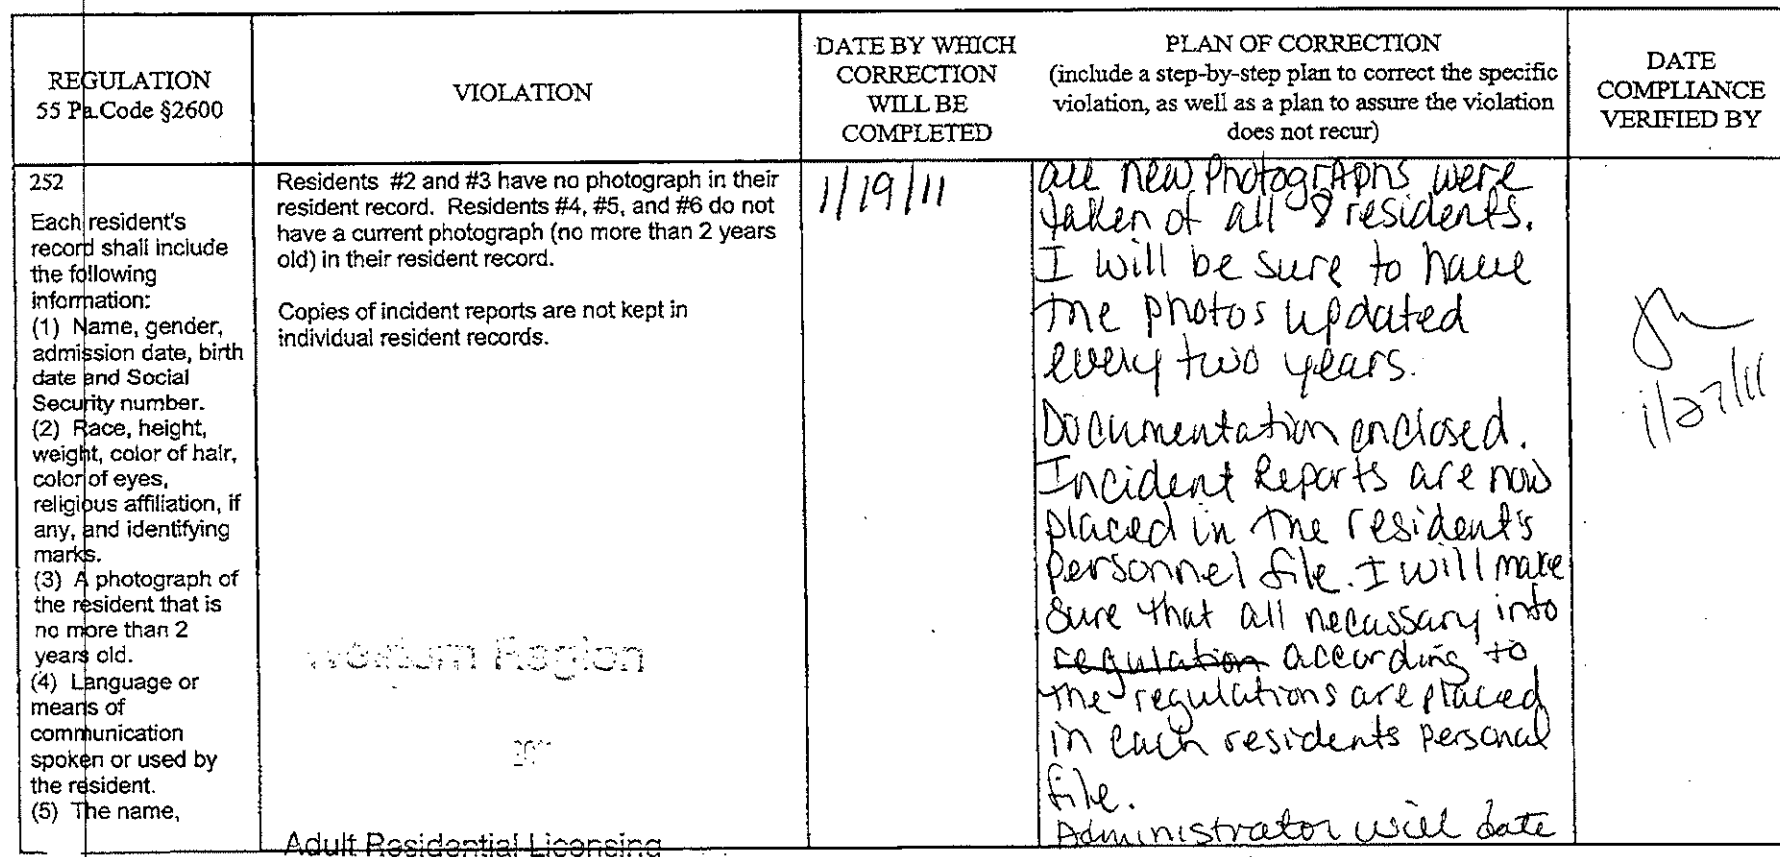 REGULATION
55 Pa.Code §2600
VIOLATION
DATE BY WHICH
CORRECTION
WILL BE
COMPLETED
PLAN OF CORRECTION
(include a step-by-step plan to correct the specific
violation, as well as a plan to assure the violation
does not recur)
DATE
COMPLIANCE
VERIFIED BY
252
Each resident's
record shall include
the following
information:
(1) Name, gender,
admission date, birth
date and Social
Security number.
(2) Race, height,
weight, color of hair,
color of eyes,
religious affiliation, if
any, and identifying
marks.
(3) A photograph of
the resident that is
no more than 2
years old.
(4) Language or
means of
communication
spoken or used by
the resident.
(5) The name,
Residents #2 and #3 have no photograph in their
resident record. Residents #4, #5, and #6 do not
have a current photograph (no more than 2 years
old) in their resident record.
Copies of incident reports are not kept in
individual resident records.
Region
Adult Residential Licensing
1/19/11
all new Photographs were
taken of all 8 residents.
I will be sure to have
the photos updated
every two years.
Documentation enclosed.
Incident Reports are now
placed in the resident's
personnel file. I will make
sure that all necassary info
regulation according to
the regulations are placed
in each residents personal
file.
Administrator will date
1/27/11